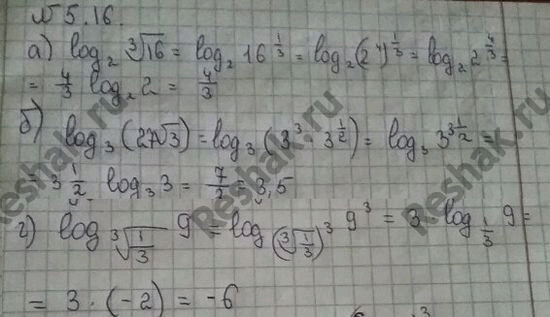 № 5.16.
а) log₂ ∛16 = log₂ 16^(1/3) = log₂ (2⁴)^(1/3) = log₂ 2^(4/3) =
= 4/3 log₂ 2 = 4/3
б) log₃ (27√3) = log₃ (3³ · 3^(1/2)) = log₃ 3^(3 1/2) =
= 3 1/2 · log₃ 3 = 7/2 = 3,5
г) log_∛(1/3) 9 = log_(∛(1/3))³ 9³ = 3 · log_(1/3) 9 =
= 3 · (-2) = -6
Reshak.ru
Reshak.ru
Reshak.ru
Reshak.ru
Reshak.ru